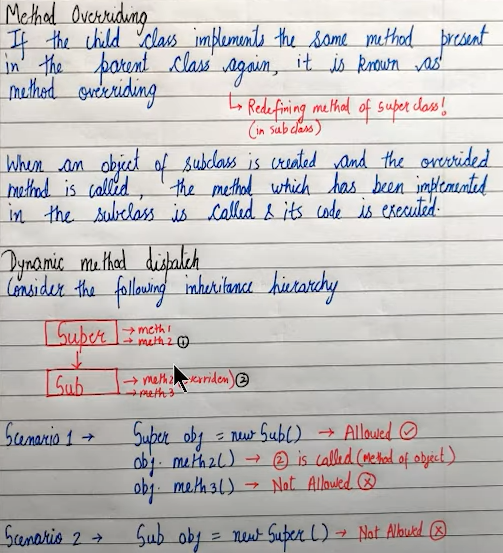 Method Overriding
If the child class implements the same method present
in the parent class again, it is known as
method overriding
↳ Redefining method of super class!
(in subclass)
When an object of subclass is created and the overrided
method is called, the method which has been implemented
in the subclass is called & its code is executed.
Dynamic method dispatch
Consider the following inheritance hierarchy
Super → meth1
→ meth2 ①
Sub → meth2 erriden) ②
→ meth3
Scenario 1 → Super obj = new Sub() → Allowed ✓
obj. meth2() → ② is called (method of object)
obj. meth3() → Not Allowed ⓧ
Scenario 2 → Sub obj = new Super() → Not Allowed ⓧ